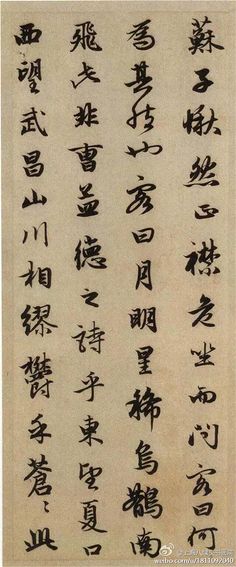 蘇子愀然正襟危坐而問客曰何
為其然也客曰月明星稀烏鵲南
飛此非曹孟德之詩乎東望夏口
西望武昌山川相繆鬱乎蒼〻此
weibo.com/u/1811092040